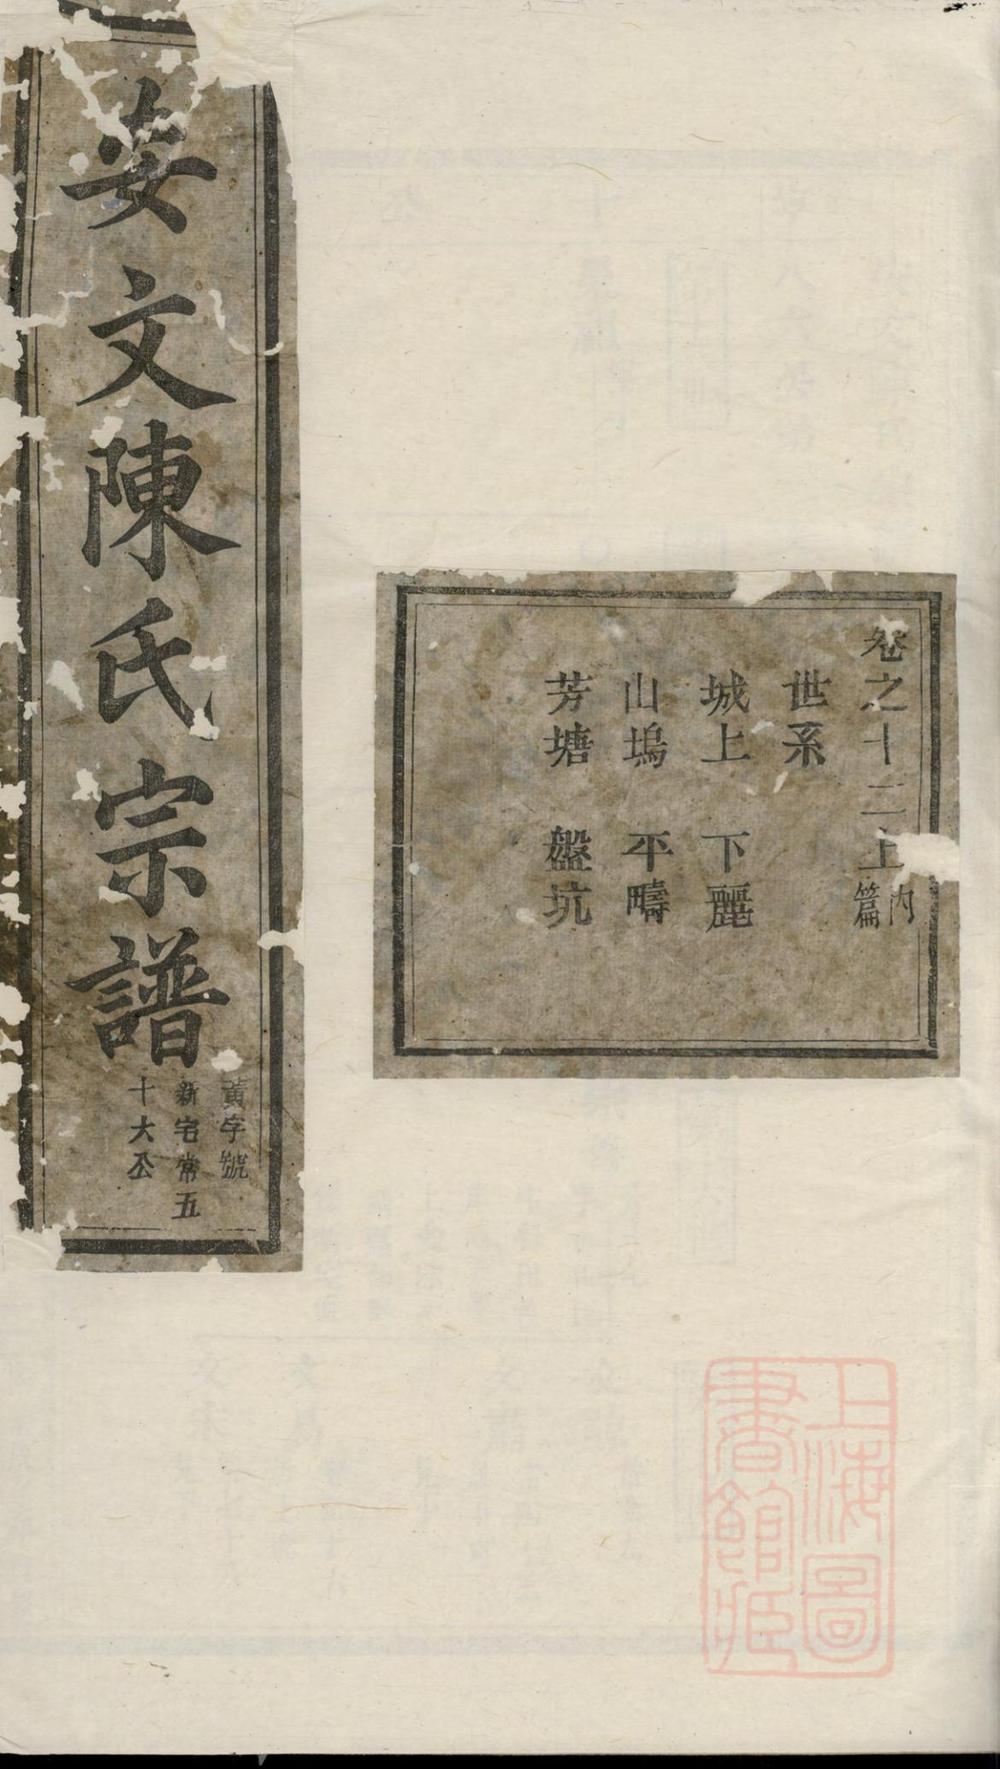 安文陳氏宗譜
黃字號
新宅常五
十大公
卷之十二上內篇
世系
城上 下麗
山塢 平疇
芳塘 盤坑
上海圖
書館藏